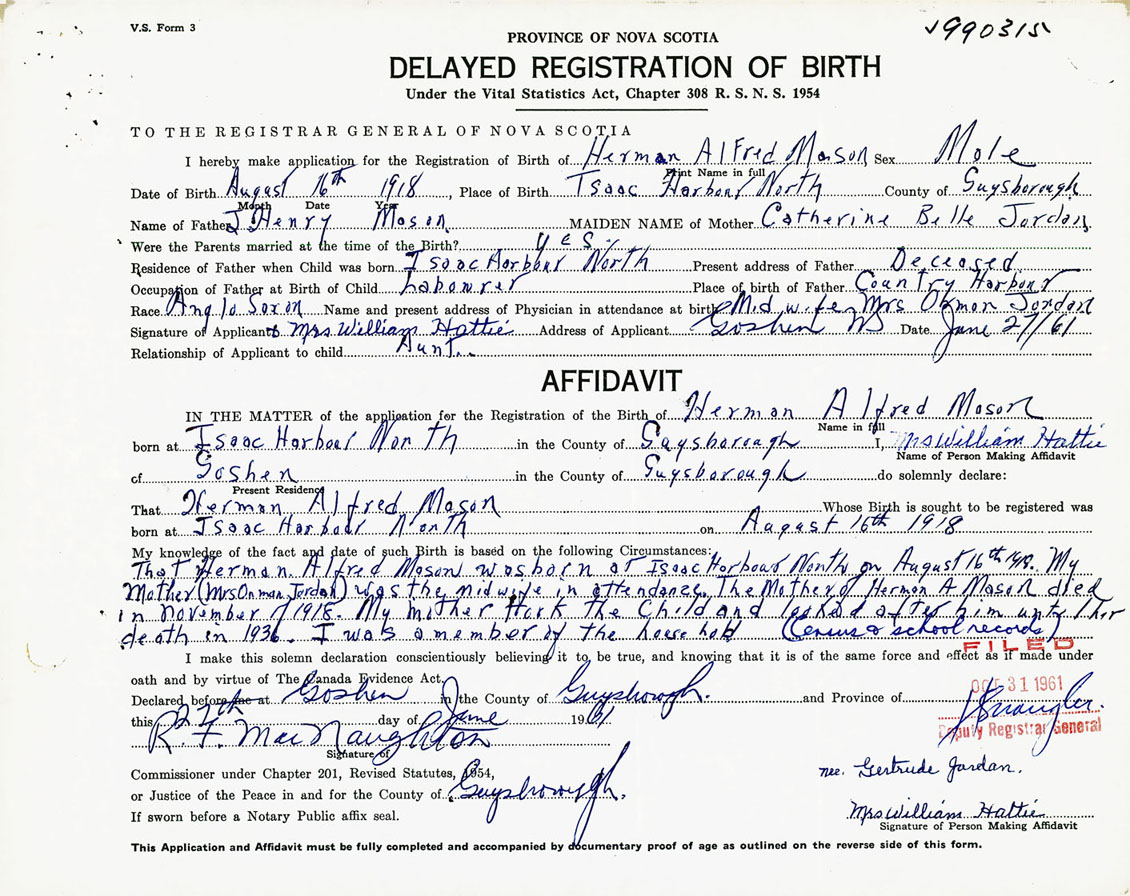 V.S. Form 3
1990315
PROVINCE OF NOVA SCOTIA
DELAYED REGISTRATION OF BIRTH
Under the Vital Statistics Act, Chapter 308 R. S. N. S. 1954
TO THE REGISTRAR GENERAL OF NOVA SCOTIA
I hereby make application for the Registration of Birth of Herman Alfred Mason Sex Male
Print Name in full
Date of Birth August 16th 1918, Place of Birth Isaac Harbour North County of Guysborough
Month Date Year
Name of Father J. Henry Mason MAIDEN NAME of Mother Catherine Belle Jordan
Were the Parents married at the time of the Birth? yes.
Residence of Father when Child was born Isaac Harbour North Present address of Father Deceased
Occupation of Father at Birth of Child Labourer Place of birth of Father Country Harbour
Race Anglo Saxon Name and present address of Physician in attendance at birth Midwife Mrs Jordan
Signature of Applicant Mrs William Hattie Address of Applicant Goshen NS Date June 27/61
Relationship of Applicant to child Aunt.
AFFIDAVIT
IN THE MATTER of the application for the Registration of the Birth of Herman Alfred Mason
Name in full
born at Isaac Harbour North in the County of Guysborough I, Mrs William Hattie
Name of Person Making Affidavit
of Goshen in the County of Guysborough do solemnly declare:
Present Residence
That Herman Alfred Mason Whose Birth is sought to be registered was
born at Isaac Harbour North on August 16th 1918
My knowledge of the fact and date of such Birth is based on the following Circumstances:
That Herman Alfred Mason was born at Isaac Harbour North on August 16th 1918. My
Mother (Mrs Jordan) was the midwife in attendance. The Mother of Herman A Mason died
in November of 1918. My Mother took the Child and looked after him until her
death in 1936. I was a member of the house hold (Census & school records)
FILED
I make this solemn declaration conscientiously believing it to be true, and knowing that it is of the same force and effect as if made under
oath and by virtue of The Canada Evidence Act.
OCT 31 1961
Declared before me at Goshen in the County of Guysborough. and Province of
this 27th day of June 1961
Deputy Registrar General
R. F. MacNaughton
Signature of
Commissioner under Chapter 201, Revised Statutes, 1954,
nee. Gertrude Jordan.
or Justice of the Peace in and for the County of Guysborough.
Mrs William Hattie
If sworn before a Notary Public affix seal.
Signature of Person Making Affidavit
This Application and Affidavit must be fully completed and accompanied by documentary proof of age as outlined on the reverse side of this form.